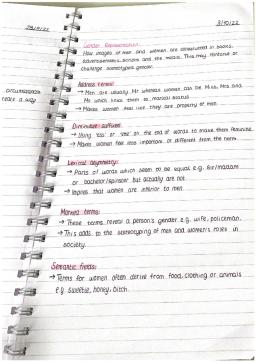 3/10/22
Gender Representation:
How images of men and women are constructed in books,
advertisements, screens and the media. This may reinforce or
challenge stereotypes gender.
Address terms:
→ Men are usually Mr whereas women can be Miss, Mrs and
Ms which links them to marital status
→ Makes women feel like they are property of men.
Diminutive suffixes:
→ Using 'ess' or 'ette' on the end of words to make them feminine
→ Makes women feel less important or different from the norm.
Lexical asymmetry:
→ Pairs of words which seem to be equal e.g. Sir/madam
or bachelor/spinster but actually are not.
→ Implies that women are inferior to men.
Marked terms:
→ These terms reveal a person's gender e.g. wife, policeman.
→ This adds to the stereotyping of men and women's roles in
society.
Semantic fields:
→ Terms for women often derive from food, clothing or animals
e.g. sweetie, honey, bitch.